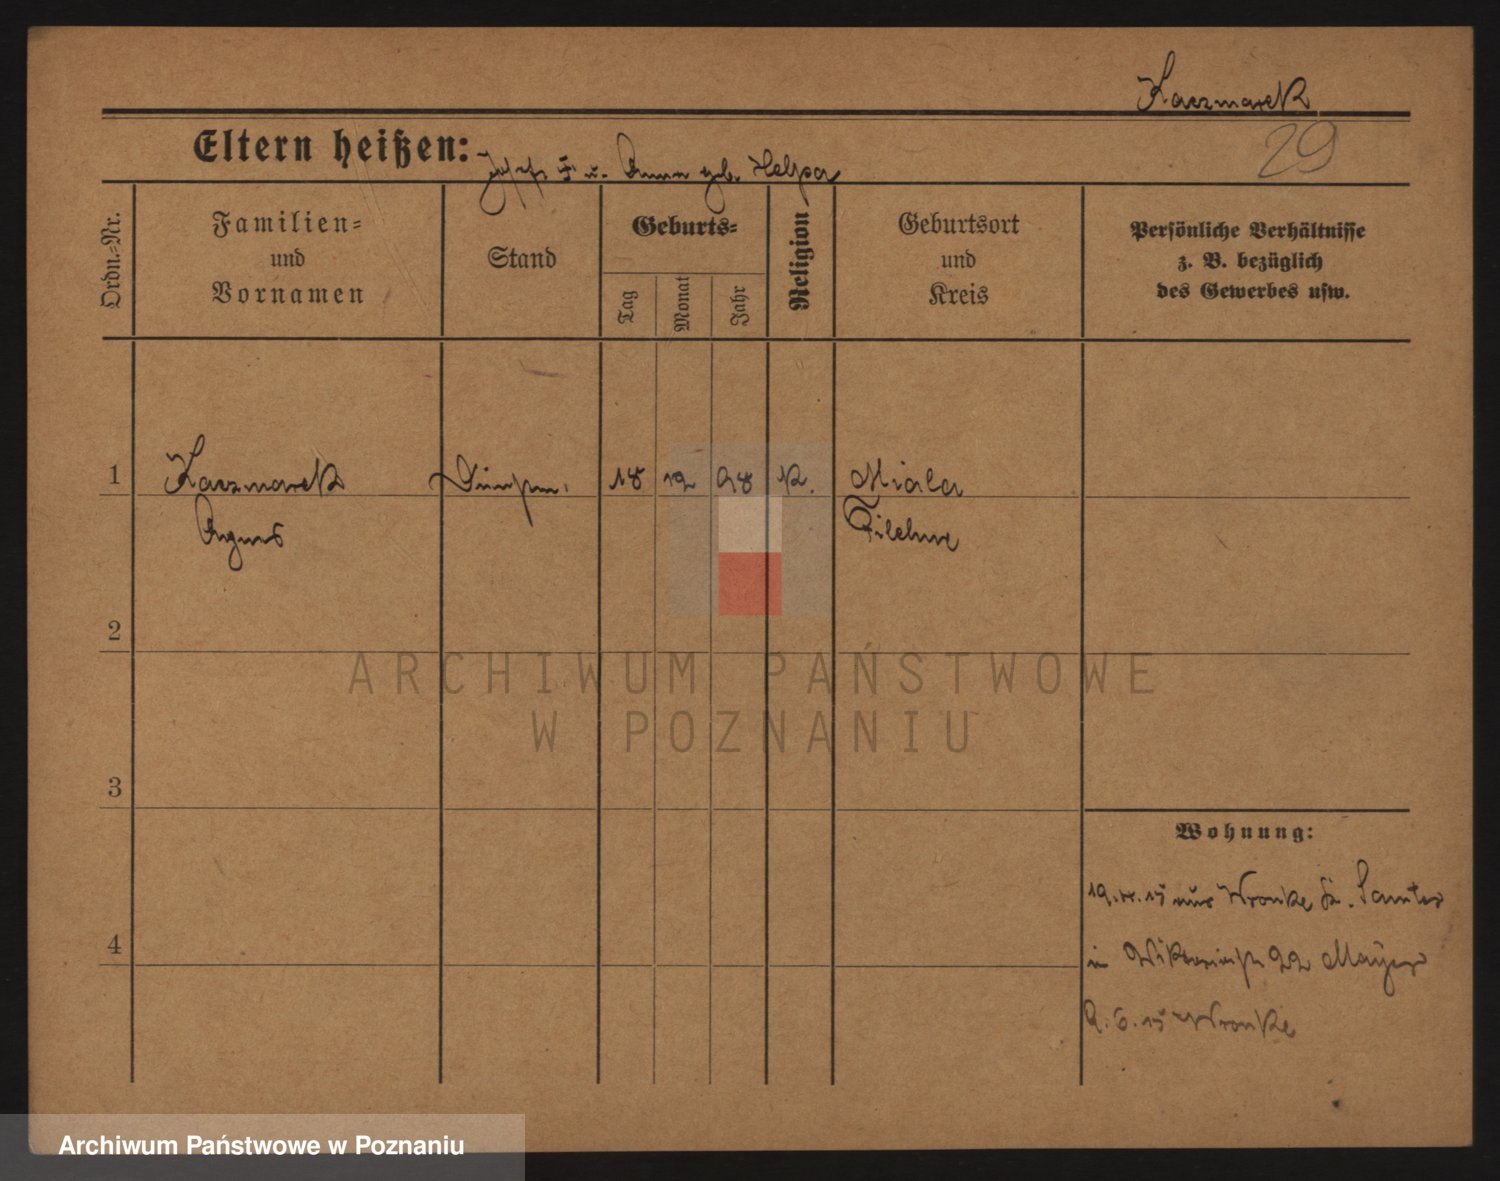 Kaczmarek
29
Eltern heißen: Josef u. Anna geb.
Ordn.-Nr.
Familien-
und
Vornamen
Stand
Geburts-
Tag
Monat
Jahr
Religion
Geburtsort
und
Kreis
Persönliche Verhältnisse
z. B. bezüglich
des Gewerbes usw.
1
Kaczmarek
18 12 98 K. Miala
Agnes
Filehne
2
ARCHIWUM PAŃSTWOWE
W POZNANIU
3
Wohnung:
15 aus Wronke Kr. Samter
4
in 22 Mayer
6. 15 Wronke
Archiwum Państwowe w Poznaniu